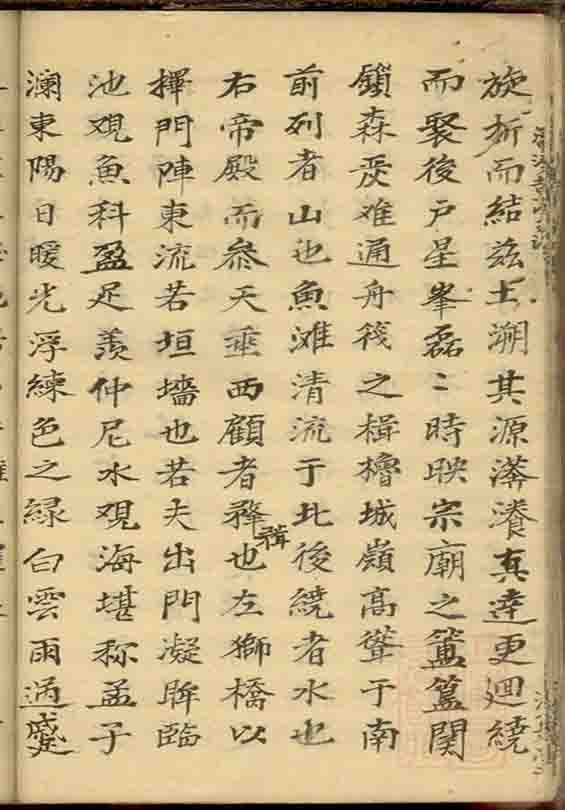 旋折而結茲土溯其源漭瀁真逹更廻繞
而聚後戶星峯磊〻時映宗廟之簠簋関
鎖森嚴难通舟筏之楫櫓城嶺高聳于南
前列者山也魚滩清流于北後繞者水也
右帝殿而参天垂西顧者也左獅橋以
揮門陣東流若垣墻也若夫出門凝眸臨
池观魚科盈足羡仲尼水观海堪称孟子
瀾東陽日暖光浮練色之緑白雲雨過